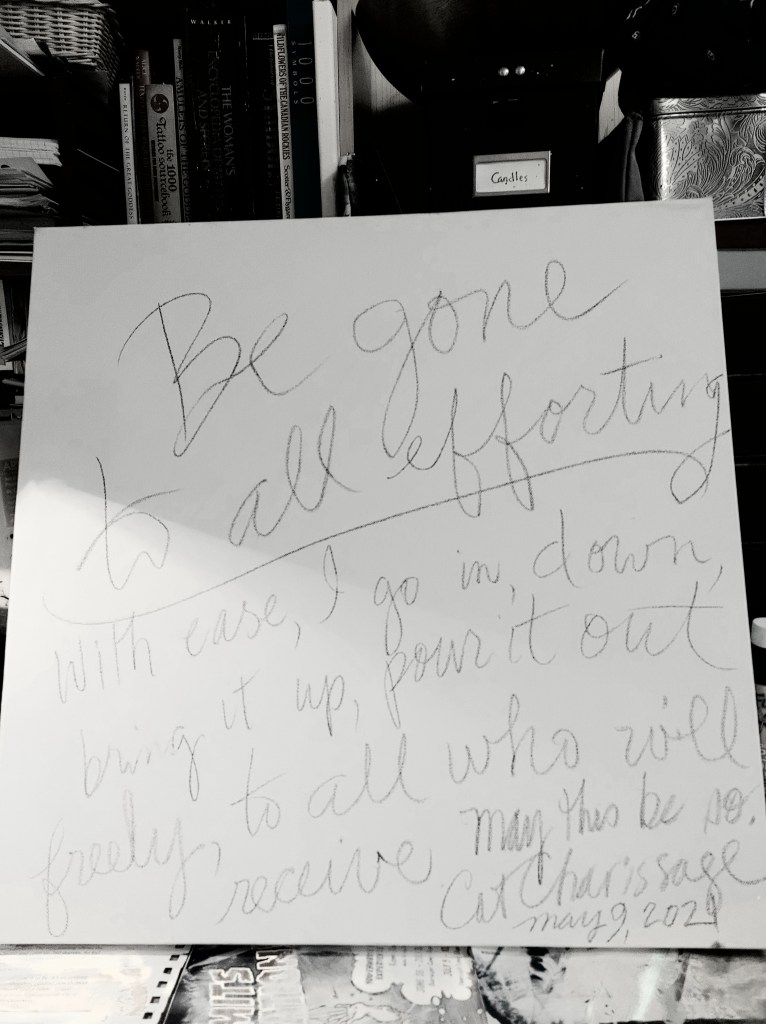 WALKER
RETURN OF THE GREAT GODDESS
the 1000 Tattoo sourcebook
THE WOMAN'S
WILDFLOWERS OF THE CANADIAN ROCKIES
1000 SYMBOLS
Candles
Be gone
to all efforting
with ease, I go in, down,
bring it up, pour it out
freely, to all who will
receive may this be so.
Cat Charissage
may 9, 2021